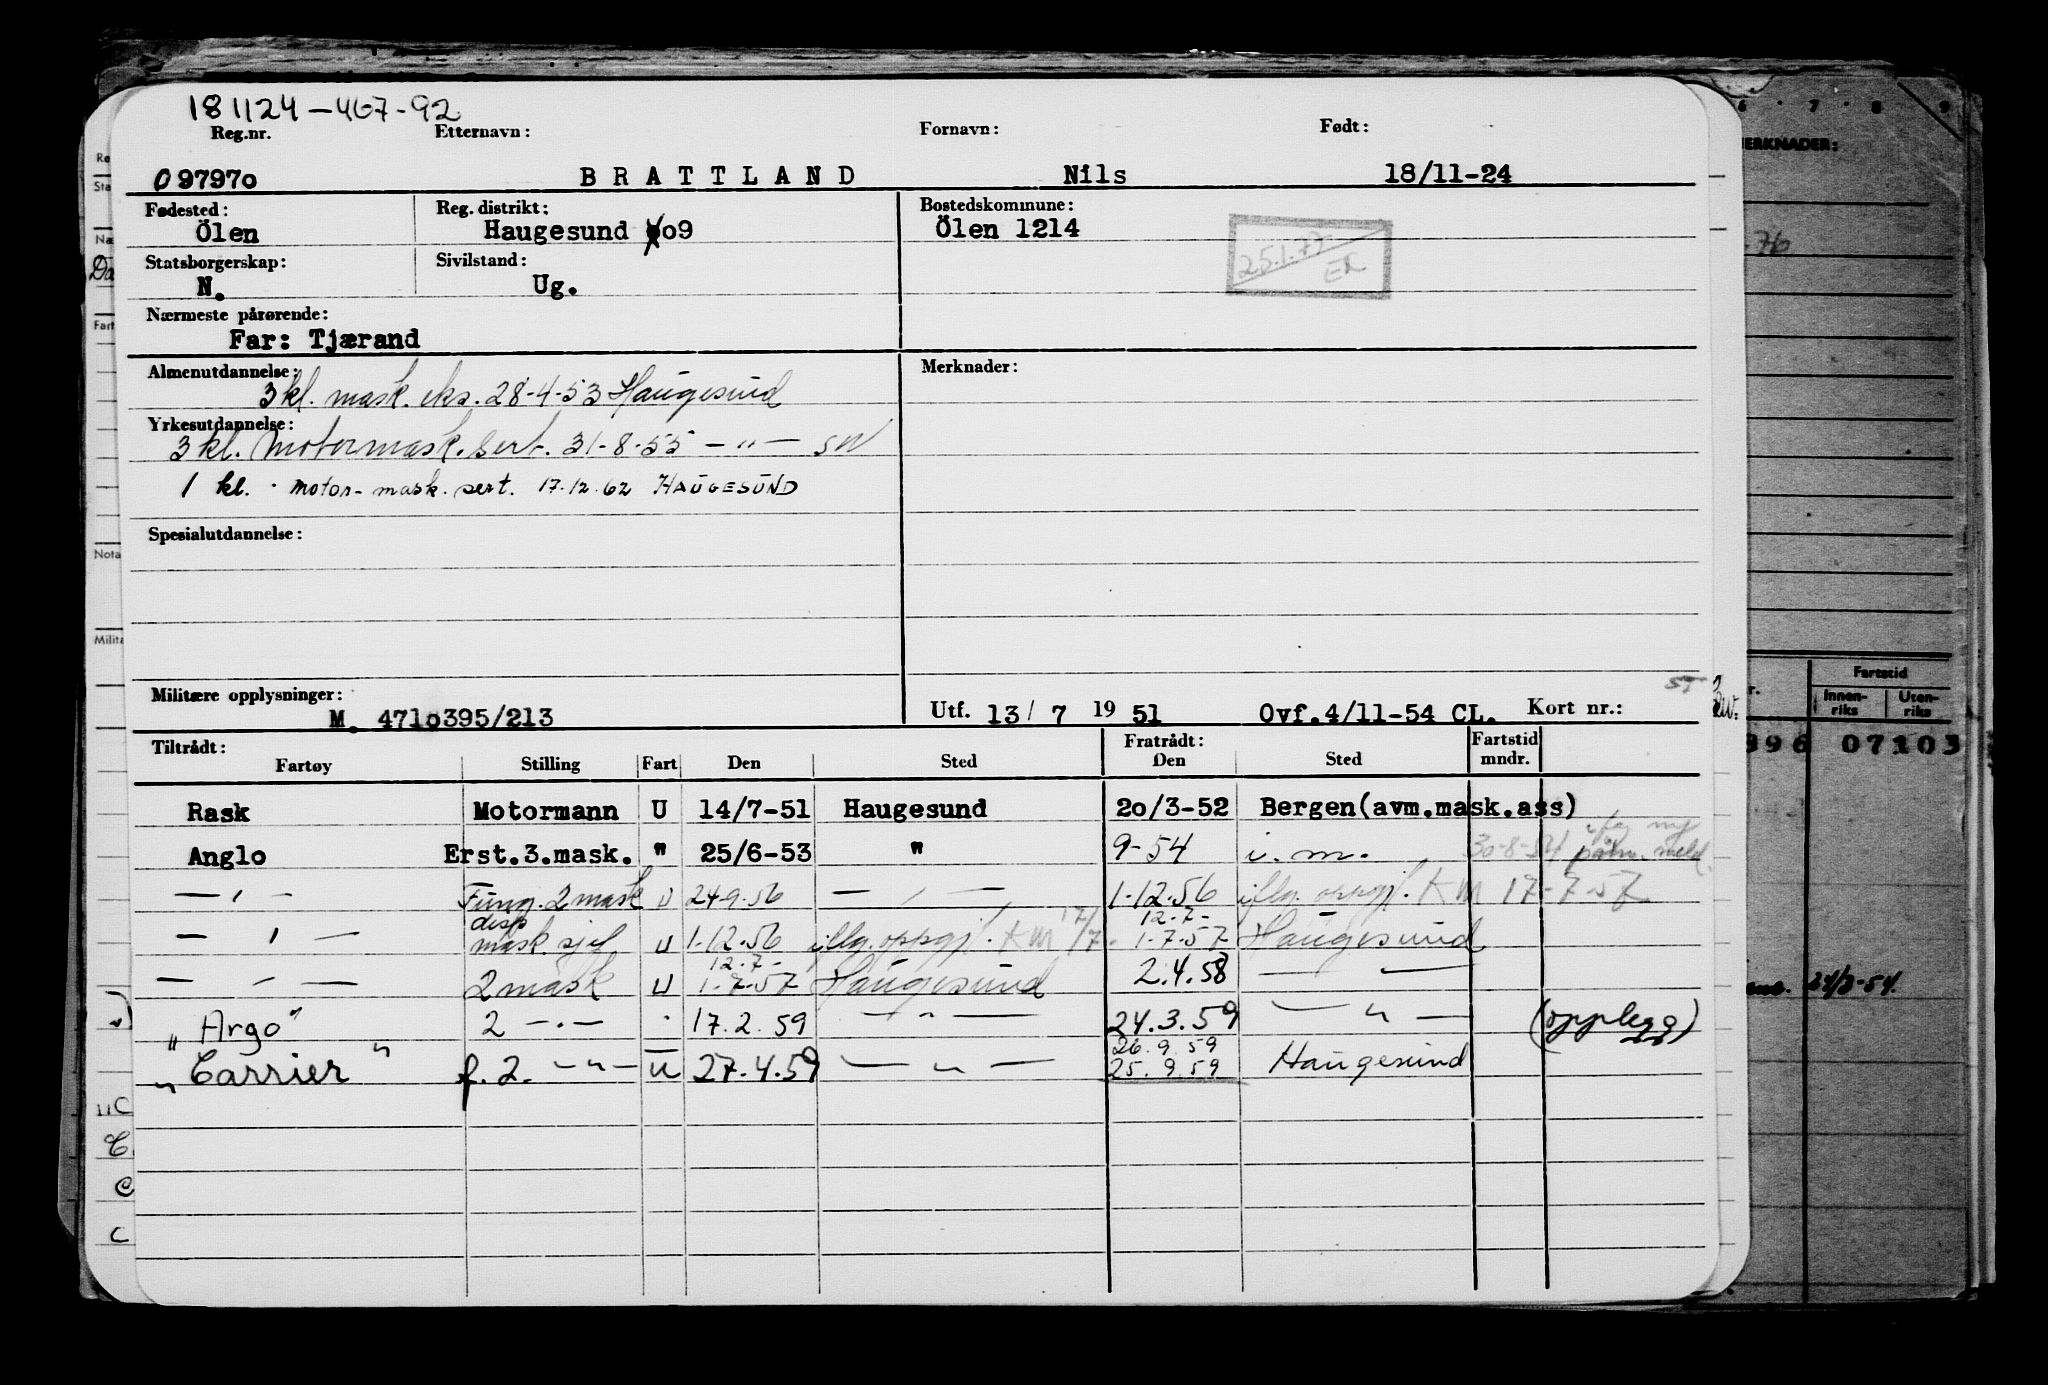 181124-467-92
Reg.nr. Etternavn: Fornavn: Født:
097970 BRATTLAND Nils 18/11-24
Fødested: Reg. distrikt: Bostedskommune:
Ölen Haugesund o9 Ölen 1214
25.1.77
Statsborgerskap: Sivilstand:
N. Ug.
Nærmeste pårørende:
Far: Tjærand
Almenutdannelse: Merknader:
3 kl. mask. eks. 28-4-53 Haugesund
Yrkesutdannelse:
3 kl. Motormask. sert. 31-8-55 — " — SW
1 kl. motor-mask. sert. 17.12.62 HAUGESUND
Spesialutdannelse:
Militære opplysninger: Utf. 13/ 7 19 51 Ovf.4/11-54 CL. Kort nr.:
M. 471o395/213
Tiltrådt: Fratrådt: Fartstid
Fartøy Stilling Fart Den Sted Den Sted mndr.
Rask Motormann U 14/7-51 Haugesund 2o/3-52 Bergen(avm.mask.ass)
Anglo Erst.3.mask. " 25/6-53 " 9-54 i. m. 30-8-54
— " — Fung. 2 mask U 24-9-56 — " — 1-12.56 iflg. oppgj. KM 17-7-57
disp 17/ 12-7-
— " — mask. sjef U 1-12-56 iflg. oppgj. KM /7. 1-7-57 Haugesund
12-7-
— " — 2 mask U 1-7-57 Haugesund 2.4.58 — " —
"Argo" 2 — " — " 17.2.59 — " — 24.3.59 — " — (opplegg)
26.9.59
"Carrier" f. 2. — " — U 27.4.59 — " — 25.9.59 Haugesund
6 7 8 9
MERKNADER:
Fartstid
Innenriks Utenriks
07103
24/3-54.